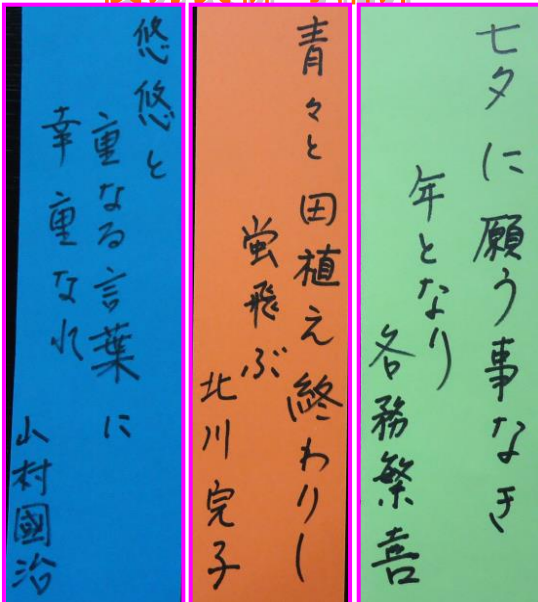 七夕に願う事なき
年となり
各務繁喜
青々と田植え終わりし
蛍飛ぶ
北川完子
悠悠と
重なる言葉に
幸重なれ
山村國治